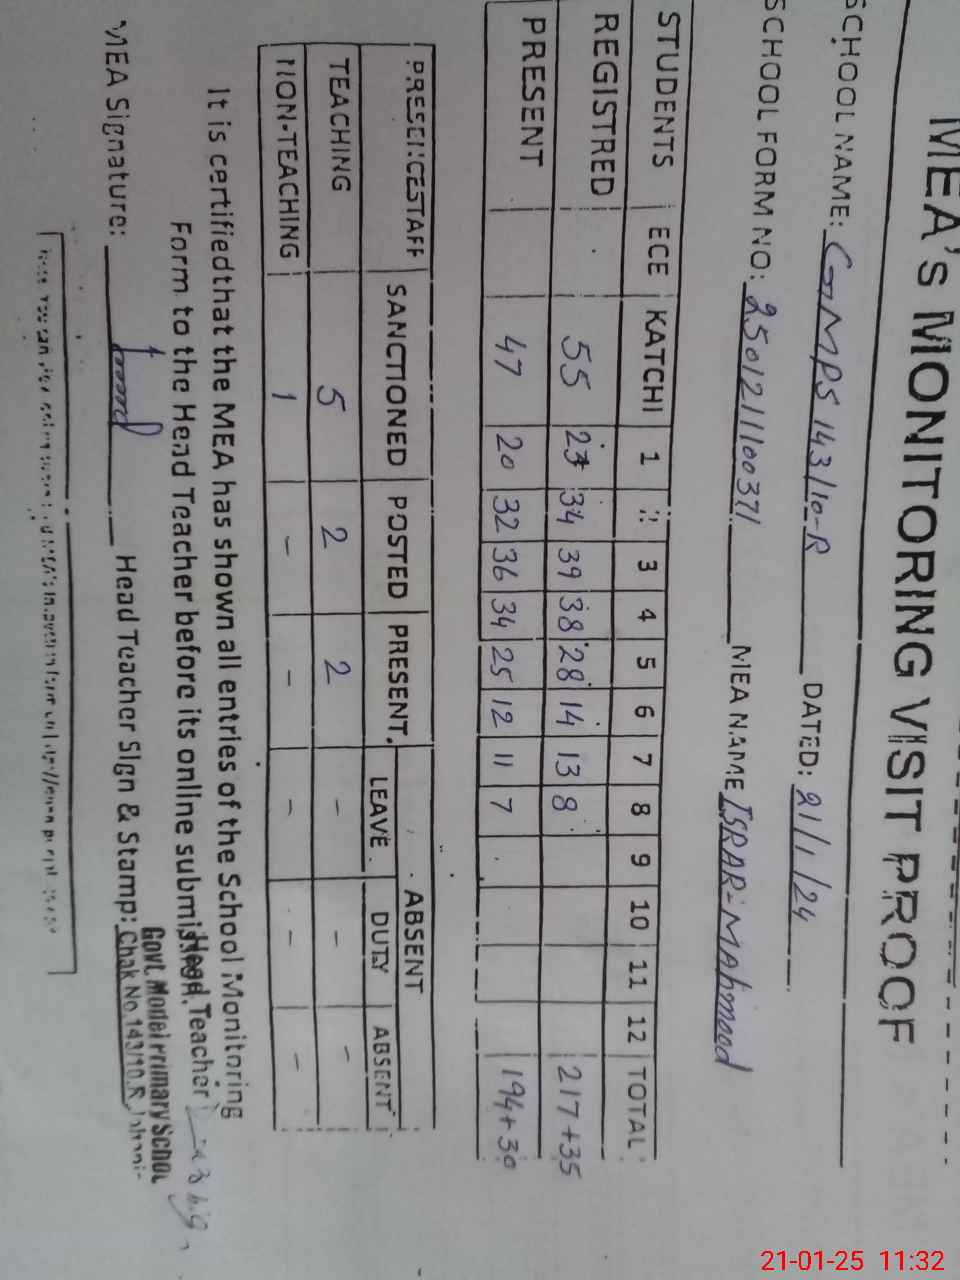 MEA's MONITORING VISIT PROOF
SCHOOL NAME: GMPS 143/10-R DATED: 21/1/24
SCHOOL FORM NO: 25012111100371 MEA NAME ISRAR-MAhmood
STUDENTS ECE KATCHI 1 2 3 4 5 6 7 8 9 10 11 12 TOTAL
REGISTRED 55 34 39 38 28 14 13 8 217+35
PRESENT 47 20 32 36 34 25 12 11 7 194+30
PRESENCE STAFF SANCTIONED POSTED PRESENT ABSENT
LEAVE DUTY ABSENT
TEACHING 5 2 2 - - -
NON-TEACHING 1 - - - - -
It is certified that the MEA has shown all entries of the School Monitoring
Form to the Head Teacher before its online submission.
MEA Signature: Head Teacher Sign & Stamp:
Head Teacher
Govt. Model Primary School
Chak No.143/10.R
21-01-25 11:32